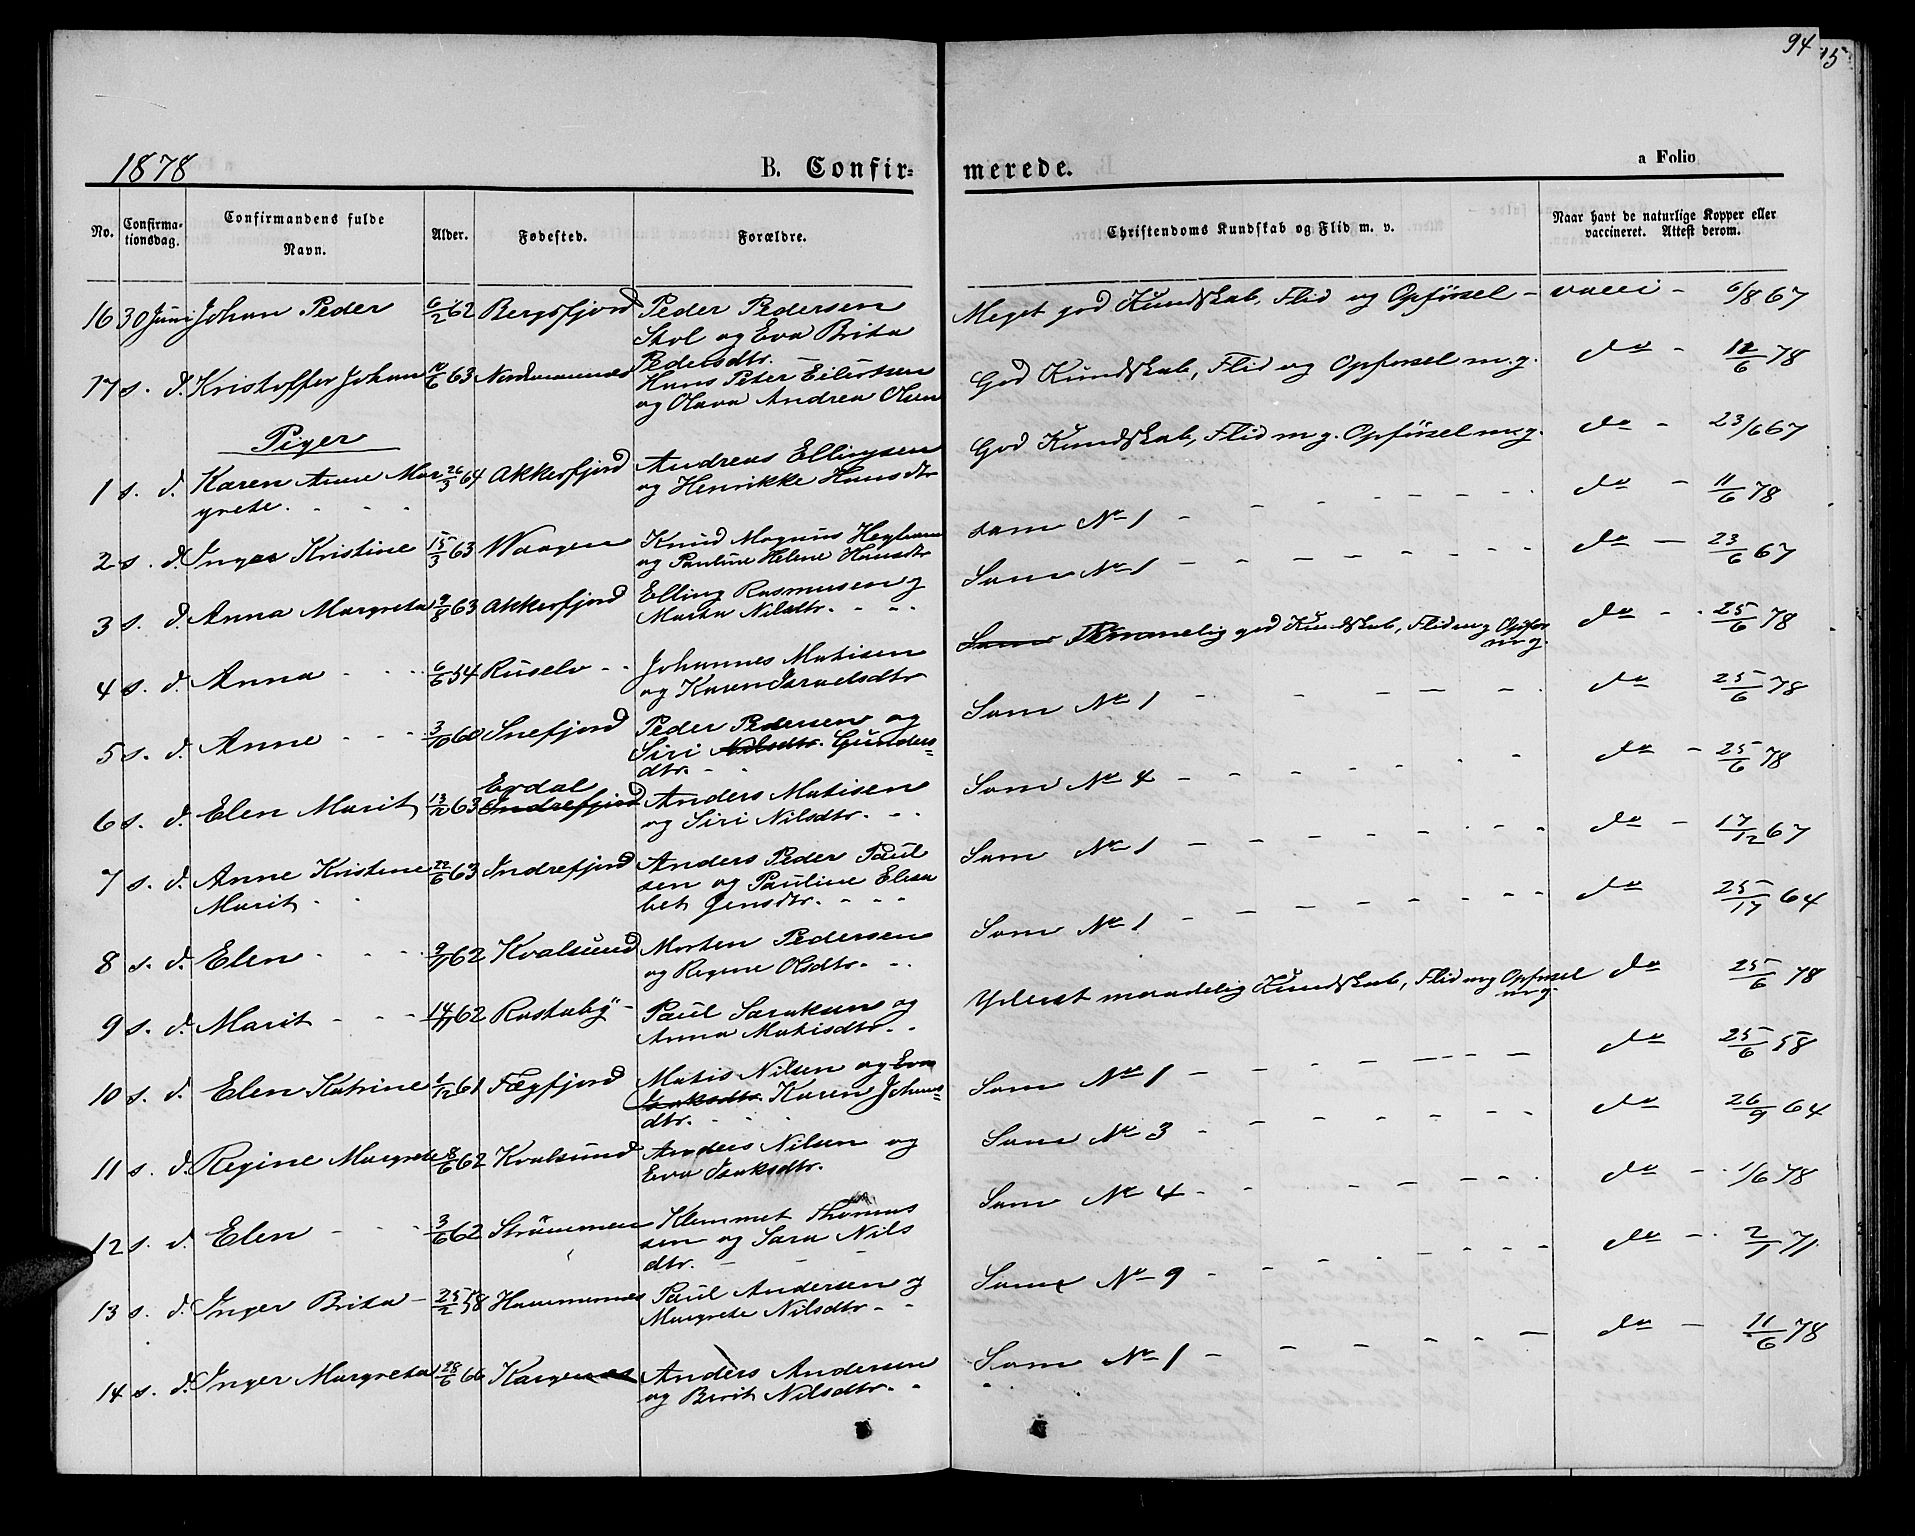 94
15
1878
B. Confir=
merede.
a Folio
No.
Confirma-
tionsdag.
Confirmandens fulde
Navn.
Alder.
Fødested.
Forældre.
Christendoms Kundskab og Flid m. v.
Naar havt de naturlige Kopper eller
vaccineret. Attest derom.
16 30 Juni Johan Peder 6/2 62 Bergsfjord Peder Pedersen Meget god Kundskab, Flid og Opførsel - vacci - 6/8 67
Skol og Eva Brita
Pedersdtr.
17 s. d. Kristoffer Johan 10/6 63 Hans Peter Eilertsen God Kundskab, Flid og Opførsel m.g. do - 12/6 78
og Olava Andrea Olsen
Piger
1 s. d. Karen Anne Mar 26/3 64 Akkerfjord Andreas Ellingsen God Kundskab, Flid m g. Opførsel m.g. do - 23/6 67
grete. og Henrikke Hansdtr
2 s. d. Inger Kristine 15/3 63 Waagen Knud Magnus som No 1 do - 11/6 78
og Pauline Helene Hansdtr
3 s. d. Anna Margreta 9/8 63 Akkerfjord Elling Rasmusen og Som No 1 do - 23/6 67
Marta Nilsdtr.
4 s. d. Anna 6/6 54 Ruselv Johannes Matisen Som Temmelig god Kundskab, Flid mg Opfør do - 25/6 78
m g.
og Karen Israelsdtr
5 s. d. Anne 3/10 60 Snefjord Peder Pedersen og Som No 1 do 25/6 78
Siri Nilsdtr. Gunders=
dtr.
Erdal
6 s. d. Elen Marit 13/12 63 Indrefjord Anders Matisen Som No 4 do - 25/6 78
og Siri Nilsdtr.
7 s. d. Anne Kristine 22/6 63 Indrefjord Anders Peder Paul Som No 1 do - 17/12 67
Marit sen og Pauline Elisa
bet Jensdtr.
8 s. d. Elen 62 Kvalsund Morten Pedersen Som No 1 do 64
og Regine Olsdtr.
9 s. d. Marit 62 Rastaby Paul Saraksen og Yderst maadelig Kundskab, Flid mg Opførsel do 25/6 78
m g.
Anna Matisdtr.
10 s. d. Elen Katrine 1/12 61 Fægfjord Matis Nilsen og Eva Som No 1 do 25/6 58
Isaksdtr. Karen Johans=
dtr.
11 s. d. Regine Margrete 8/6 62 Kvalsund Anders Nilsen og Som No 3 do 26/9 64
Eva Isaksdtr.
12 s. d. Elen 3/6 62 Strømmen Klemmet Thomas Som No 4 do - 1/6 78
sen og Sara Nils
dtr.
13 s. d. Inger Brita 25/2 58 Hammernes Paul Andersen og Som No 9 do - 2/1 71
Margrete Nilsdtr
14 s. d. Inger Margreta 28/6 66 Kargenes Anders Andersen Som No 1 do - 11/6 78
og Berit Nilsdtr.